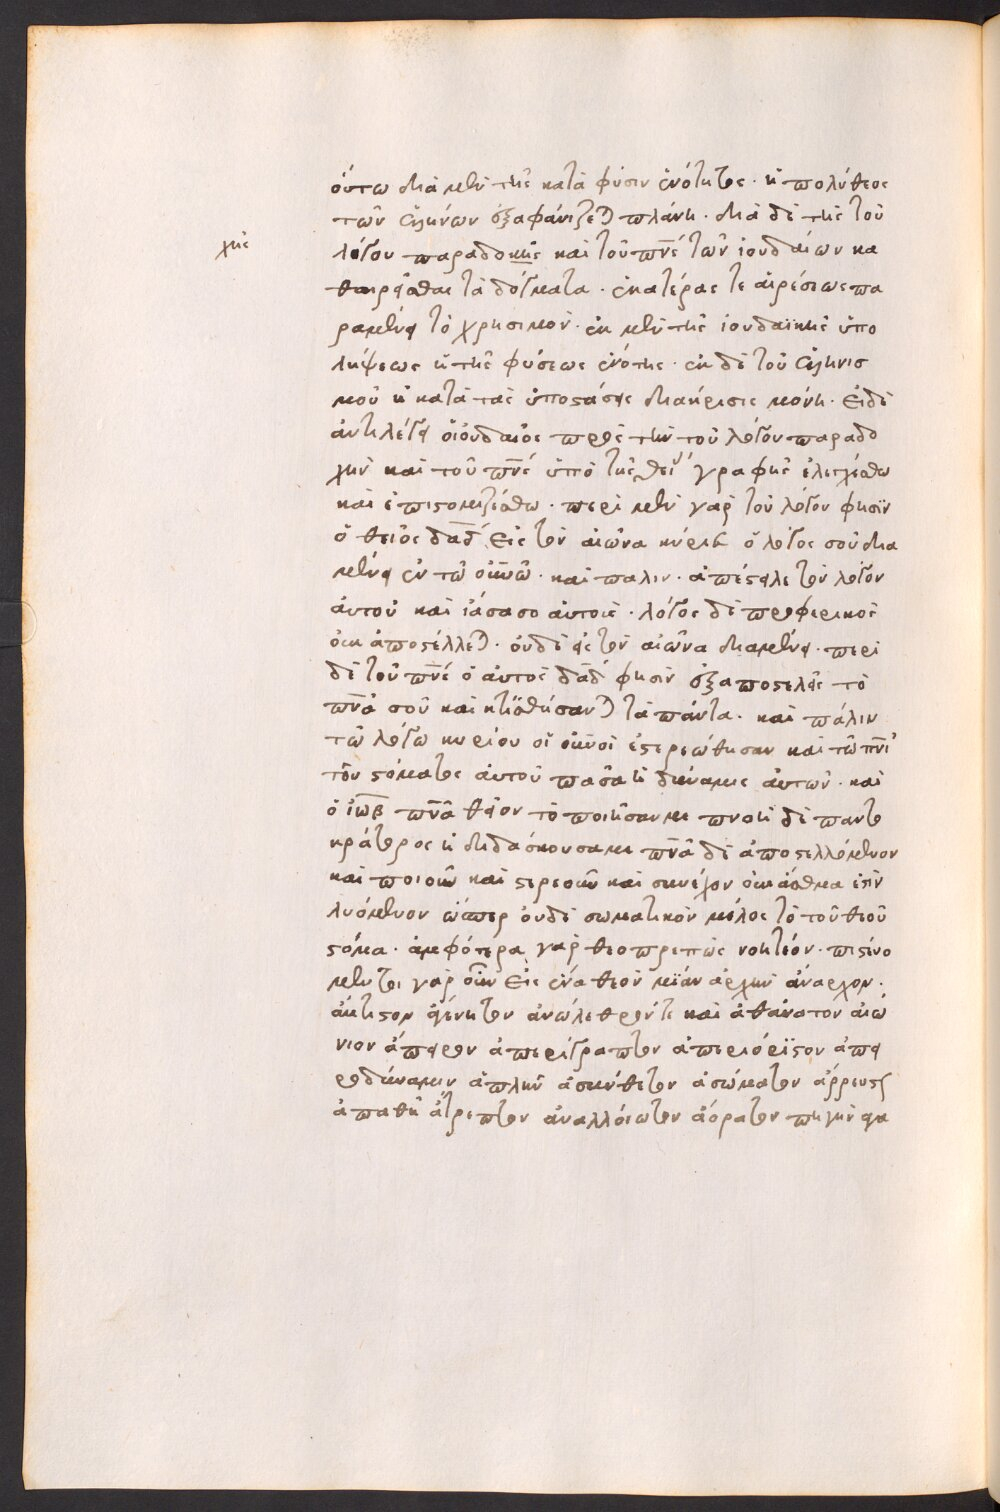 ὅυτω διὰ μὲν τῆς κατὰ φύσιν ἑνότητος · ἡ πολύθεος
τῶν ἑλλήνων ἐξαφανίζεται πλάνη · διὰ δὲ τῆς τοῦ
χῆς
λόγου παραδοκῆς καὶ τοῦ πνς τῶν ἰουδαίων κα
θαιρεῖσθαι τὰ δόγματα · ἑκατέρας τε αἱρέσεως πα
ραμένει τὸ χρήσιμον · ἐκ μὲν τῆς ἰουδαϊκῆς ὑπο
λήψεως ἡ τῆς φύσεως ἑνότης · ἐκ δὲ τοῦ ἑλληνισ
μοῦ ἡ κατὰ τὰς ὑποστάσεις διακρισις μόνη · Εἰ δὲ
ἀντιλέγει ὁ ἰουδαῖος πρὸς τὴν τοῦ λόγου παραδο
χὴν καὶ τοῦ πνς ὑπὸ τῆς θείας γραφῆς ἐλεγχέσθω
καὶ ἐπιστομιζέσθω · περὶ μὲν γὰρ τοῦ λόγου φησὶν
ὁ θεῖος δαδ Εἰς τὸν αἰῶνα κύριε ὁ λόγος σοῦ δια
μένει ἐν τῶ οὐνῶ · καὶ παλιν · ἀπέστειλε τὸν λόγον
ἀυτοῦ καὶ ἰάσατο ἀυτοὺς · λόγος δὲ προφερικὸς
οὐκ ἀποστέλλεται · ὀυδὲ εἰς τὸν αἰῶνα διαμένει · περὶ
δὲ τοῦ πνς ὁ ἀυτὸς δαδ φησὶν ἐξαποστελεῖς τὸ
πνα σοῦ καὶ κτισθήσονται τὰ πάντα · καὶ πάλιν
τῶ λόγω κυρίου οἱ οὐνοὶ ἐστερεώθησαν καὶ τῶ πνι
τοῦ στόματος ἀυτοῦ πᾶσα ἡ δύναμις ἀυτῶν · καὶ
ὁ ἰὼβ πνα θεῖον τὸ ποιῆσαν με πνοὴ δὲ παντο
κράτορος ἡ διδάσκουσα με πνα δὲ ἀποστελλόμενον
καὶ ποιοῦν καὶ στερεοῦν καὶ συνέχον οὐκ ἆσθμα ἐστὶν
λυόμενον ὥσπερ ὀυδὲ σωματικὸν μέλος τὸ τοῦ θεοῦ
στόμα · ἀμφότερα γὰρ θεοπρεπῶς νοητέον · πιστέυο
μεν τοι γὰρ οὖν Εἰς ἕνα θεὸν μίαν ἀρχὴν ἄναρχον ·
ἄκτιστον ἀγένητον ἀνώλεθρόν τε καὶ ἀθάνατον αἰώ
νιον ἄπειρον ἀπερίγραπτον ἀπεριόριστον ἀπει
ροδύναμον ἁπλῆν ἀσύνθετον ἀσώματον ἄρρευστ
ἀπαθῆ ἄτρεπτον ἀναλλόιωτον ἀόρατον πηγὴν ἀγα